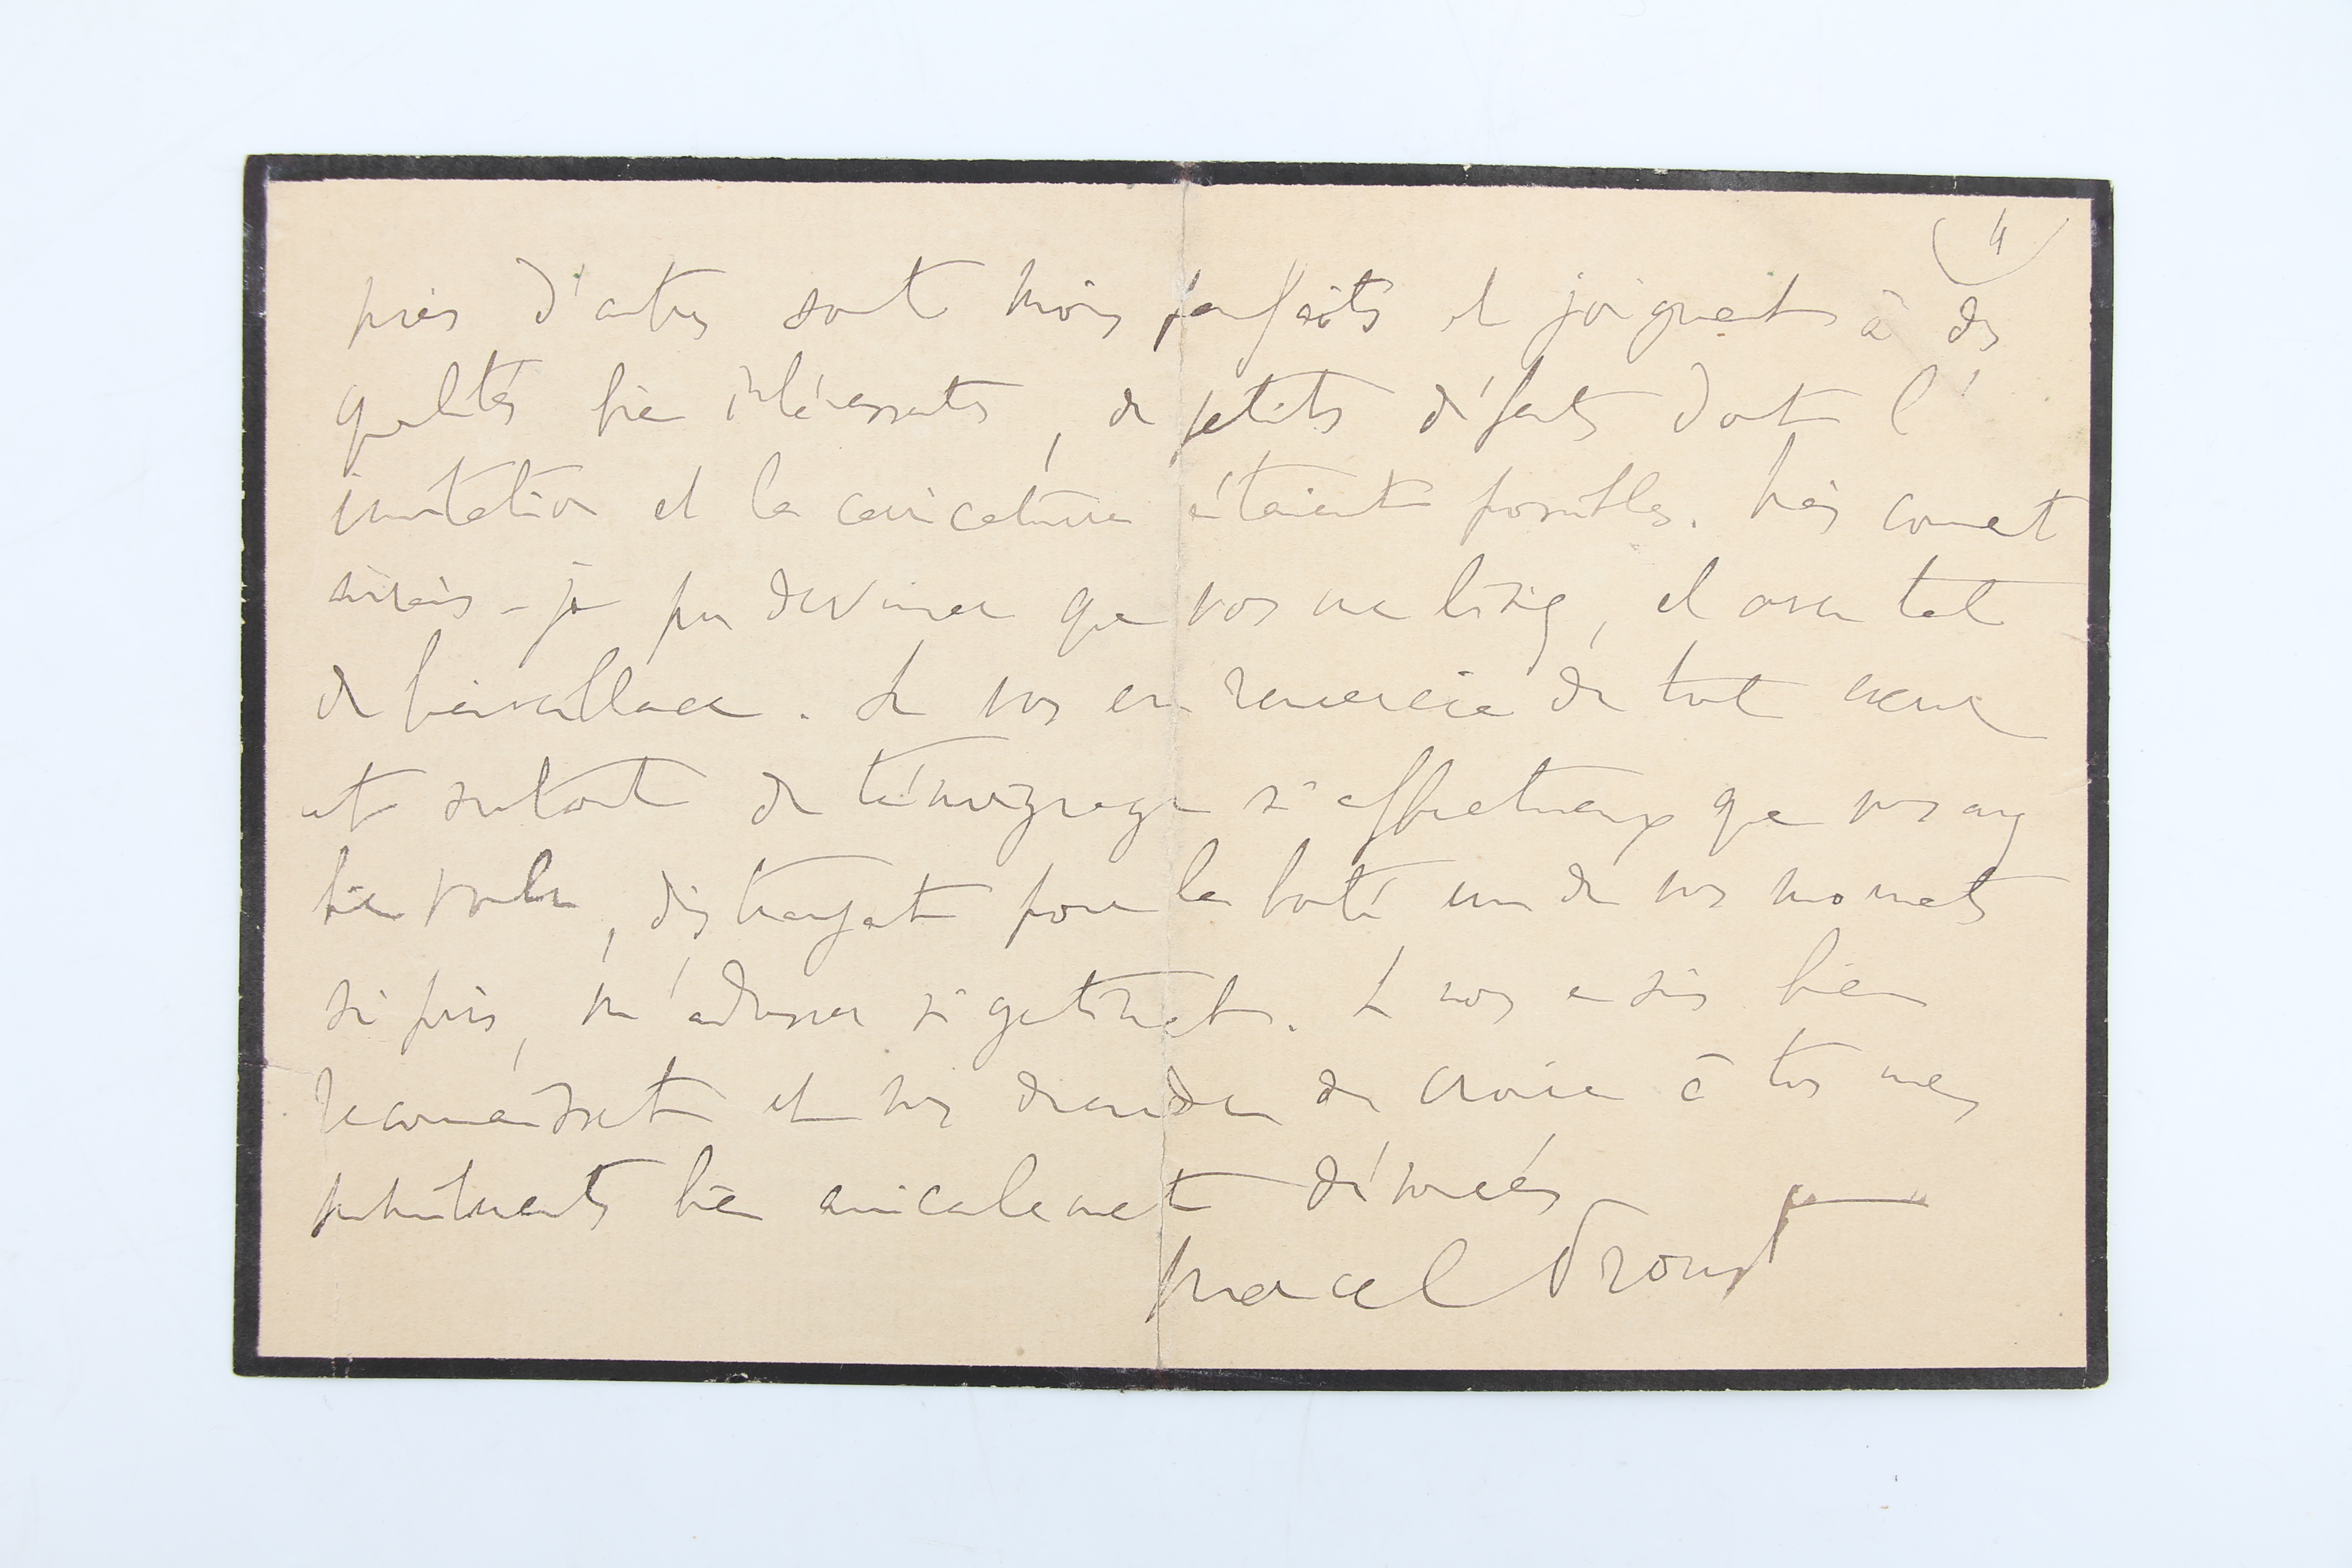 4
d'autres sont moins parfaits et joignent à des
qualités bien intéressantes, de petits défauts dont l'
imitation et la caricature étaient possibles. Mais comment
aurais-je pu deviner que vous me lisiez, et avec tant
de bienveillance. Je vous en remercie de tout cœur
et surtout du témoignage si affectueux que vous avez
bien voulu, distrayant pour la bonté un de vos moments
si pris, m'adresser si gentiment. Je vous en suis bien
reconnaissant et vous demande de croire à tous mes
sentiments bien amicalement dévoués
Marcel Proust